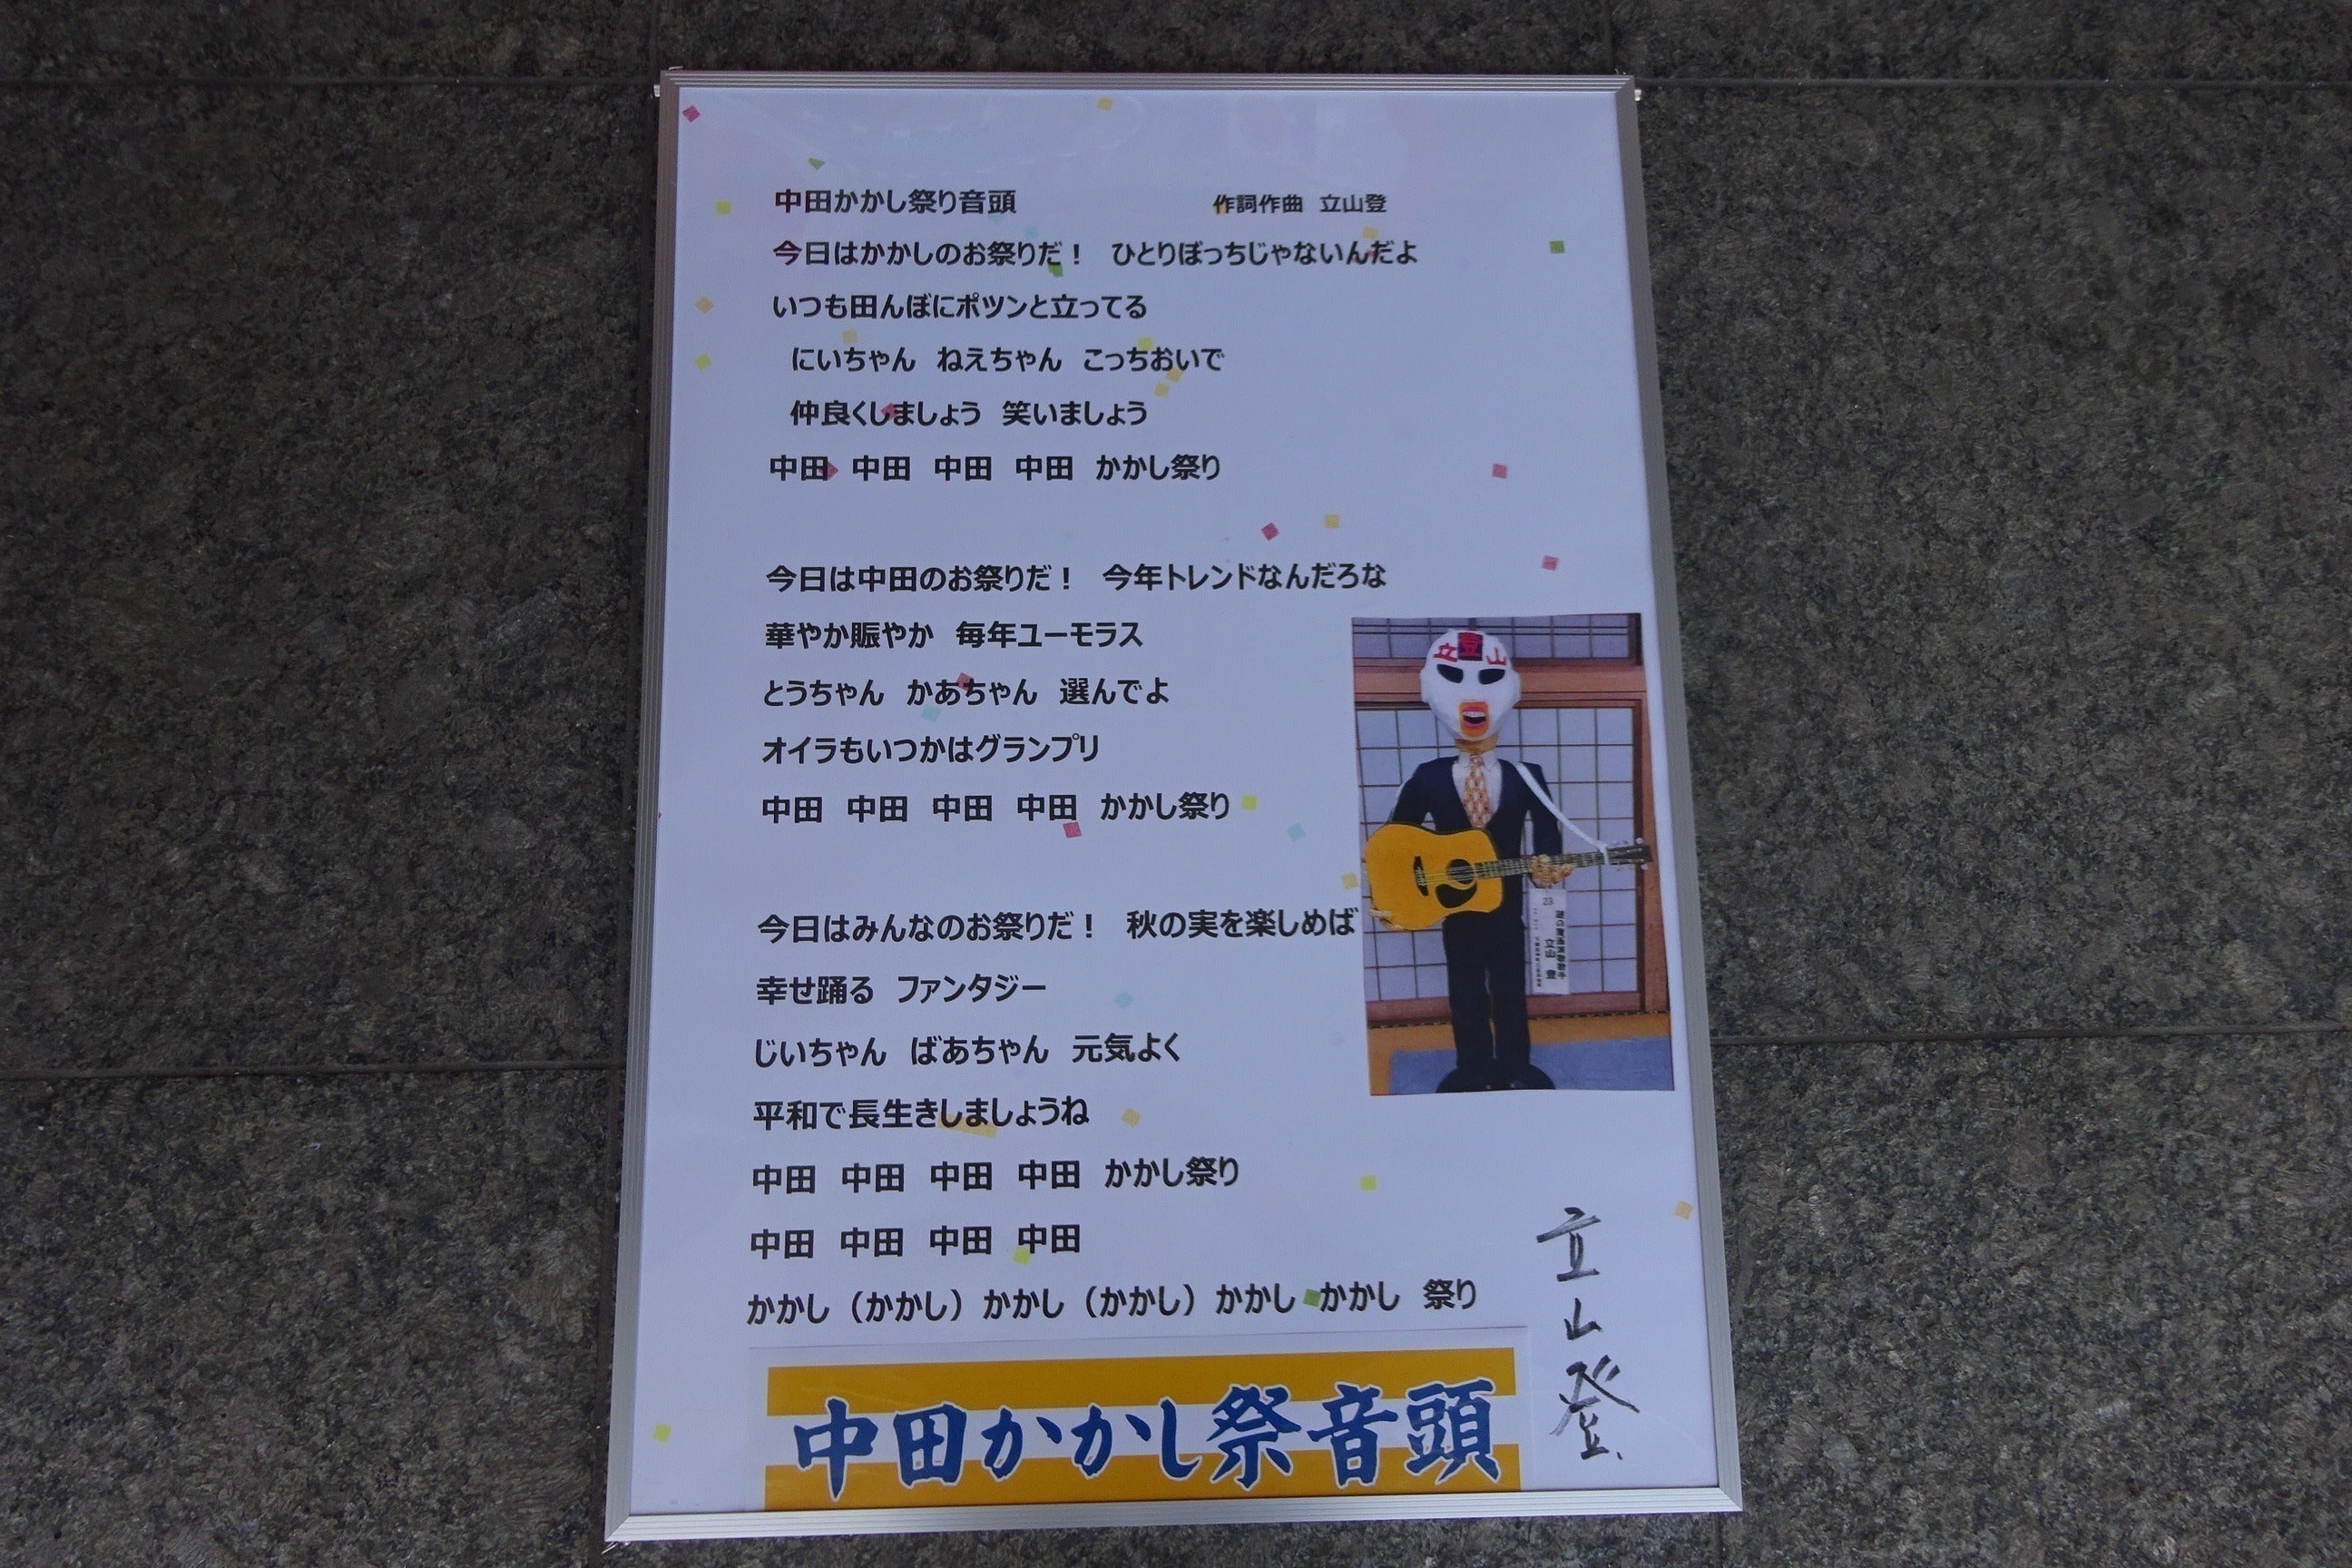 中田かかし祭り音頭　作詞作曲　立山登
今日はかかしのお祭りだ！　ひとりぼっちじゃないんだよ
いつも田んぼにポツンと立ってる
にいちゃん　ねえちゃん　こっちおいで
仲良くしましょう　笑いましょう
中田　中田　中田　中田　かかし祭り
今日は中田のお祭りだ！　今年トレンドなんだろな
華やか賑やか　毎年ユーモラス
とうちゃん　かあちゃん　選んでよ
オイラもいつかはグランプリ
中田　中田　中田　中田　かかし祭り
今日はみんなのお祭りだ！　秋の実を楽しめば
幸せ踊る　ファンタジー
じいちゃん　ばあちゃん　元気よく
平和で長生きしましょうね
中田　中田　中田　中田　かかし祭り
中田　中田　中田　中田
かかし（かかし）かかし（かかし）かかし　かかし　祭り
立登山
23
立山　登
立山登
中田かかし祭音頭